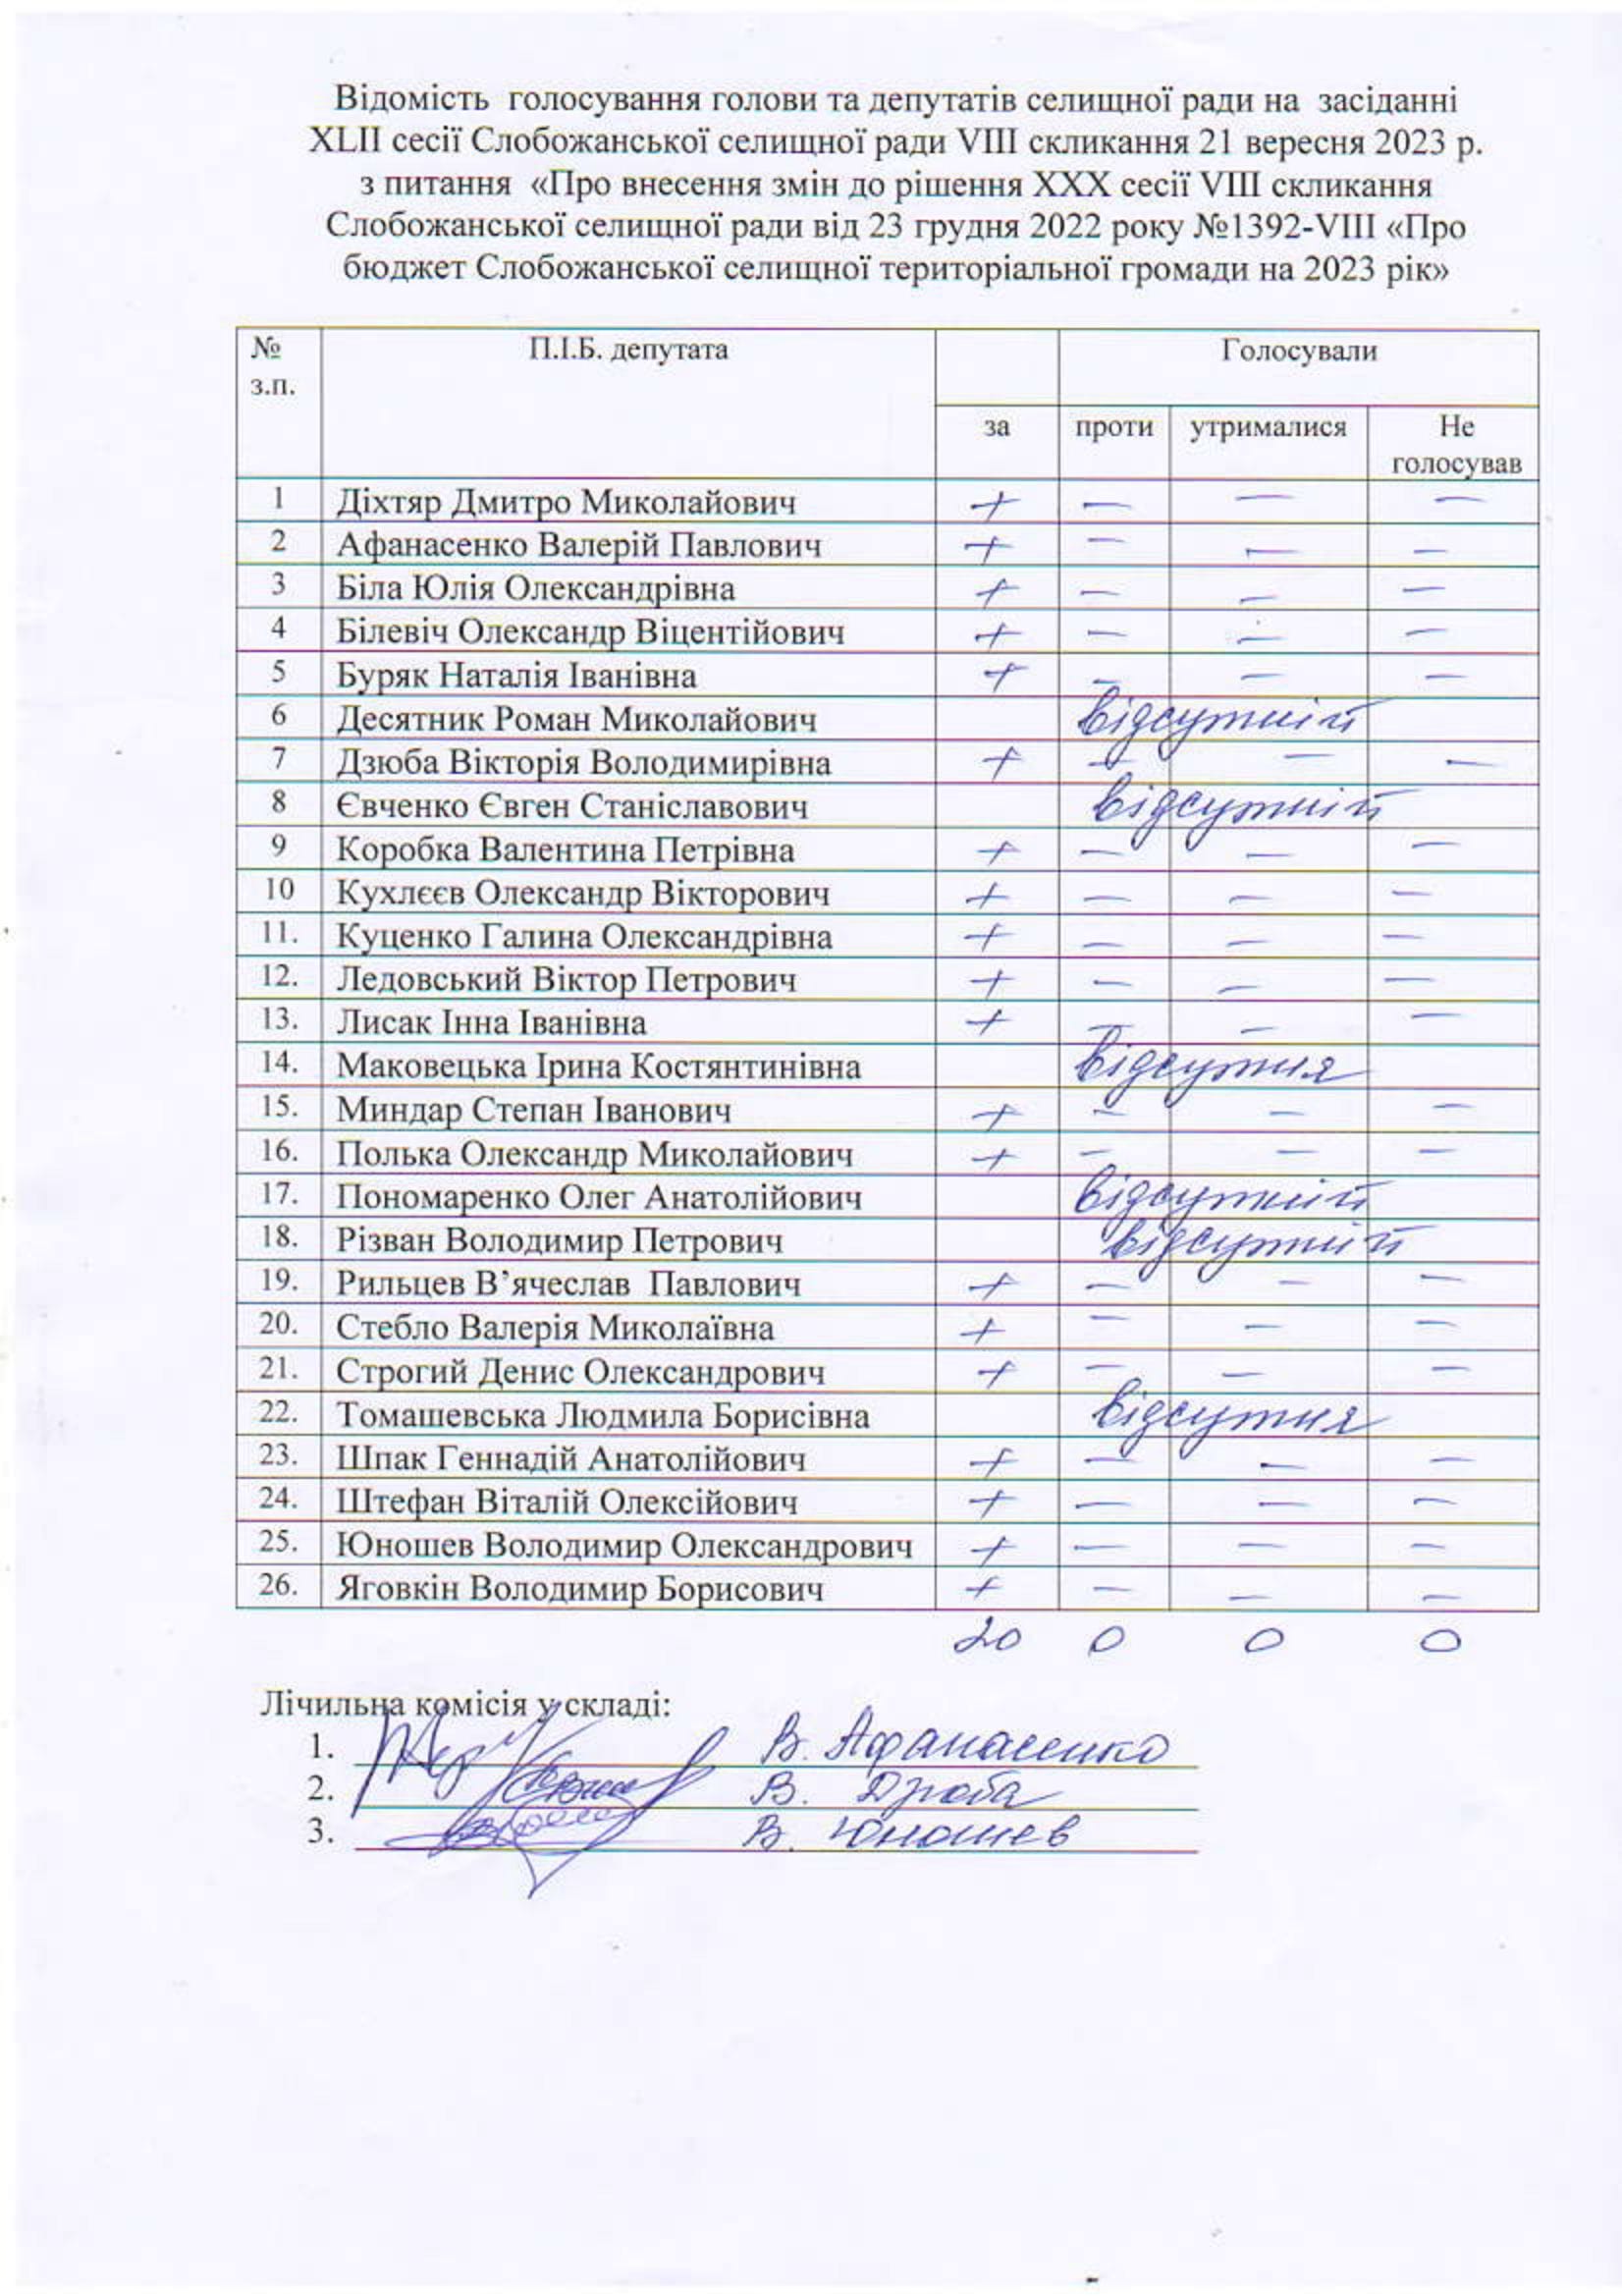 Відомість голосування голови та депутатів селищної ради на засіданні
XLII сесії Слобожанської селищної ради VIII скликання 21 вересня 2023 р.
з питання «Про внесення змін до рішення XXX сесії VIII скликання
Слобожанської селищної ради від 23 грудня 2022 року №1392-VIII «Про
бюджет Слобожанської селищної територіальної громади на 2023 рік»
№ з.п. П.І.Б. депутата Голосували
за проти утрималися Не голосував
1 Діхтяр Дмитро Миколайович + — — —
2 Афанасенко Валерій Павлович + — — —
3 Біла Юлія Олександрівна + — — —
4 Білевіч Олександр Віцентійович + — — —
5 Буряк Наталія Іванівна + — — —
6 Десятник Роман Миколайович відсутній
7 Дзюба Вікторія Володимирівна + — — —
8 Євченко Євген Станіславович відсутній
9 Коробка Валентина Петрівна + — — —
10 Кухлєєв Олександр Вікторович + — — —
11. Куценко Галина Олександрівна + — — —
12. Ледовський Віктор Петрович + — — —
13. Лисак Інна Іванівна + — — —
14. Маковецька Ірина Костянтинівна відсутня
15. Миндар Степан Іванович + — — —
16. Полька Олександр Миколайович + — — —
17. Пономаренко Олег Анатолійович відсутній
18. Різван Володимир Петрович відсутній
19. Рильцев В’ячеслав Павлович + — — —
20. Стебло Валерія Миколаївна + — — —
21. Строгий Денис Олександрович + — — —
22. Томашевська Людмила Борисівна відсутня
23. Шпак Геннадій Анатолійович + — — —
24. Штефан Віталій Олексійович + — — —
25. Юношев Володимир Олександрович + — — —
26. Яговкін Володимир Борисович + — — —
20 0 0 0
Лічильна комісія у складі:
1. В. Афанасенко
2. В. Дзюба
3. В. Юношев